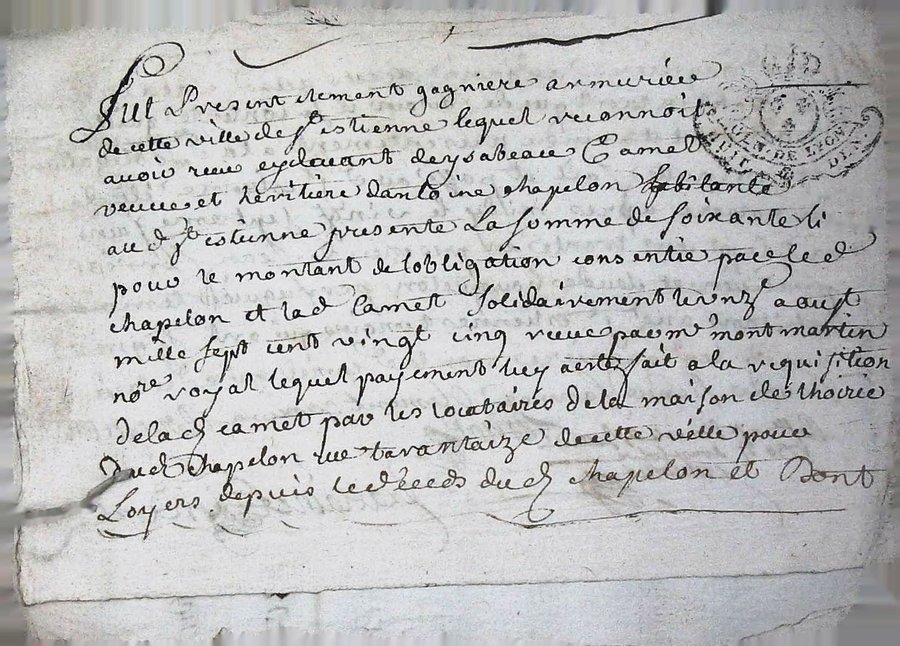 Fut Present clement gagniere armuriée
de cette ville de St estienne lequel reconnoit
avoir reçu cy devant deysabeau Camet
veuve et heritiere dantoine chapelon habitante
aud St estienne presente La somme de soixante li
pour le montant de lobligation consentie par led
chapelon et lad Camet solidairement le aoust
mille sept cent vingt cinq reçue par me montmartin
nore royal lequel payement luy a été fait a la requisition
de la d camet par les locataires de la maison de lhoirie
dud chapelon rue tarantaize de cette ville pour
Loyers depuis le deceds du d chapelon et Dont
GEN. DE LYON